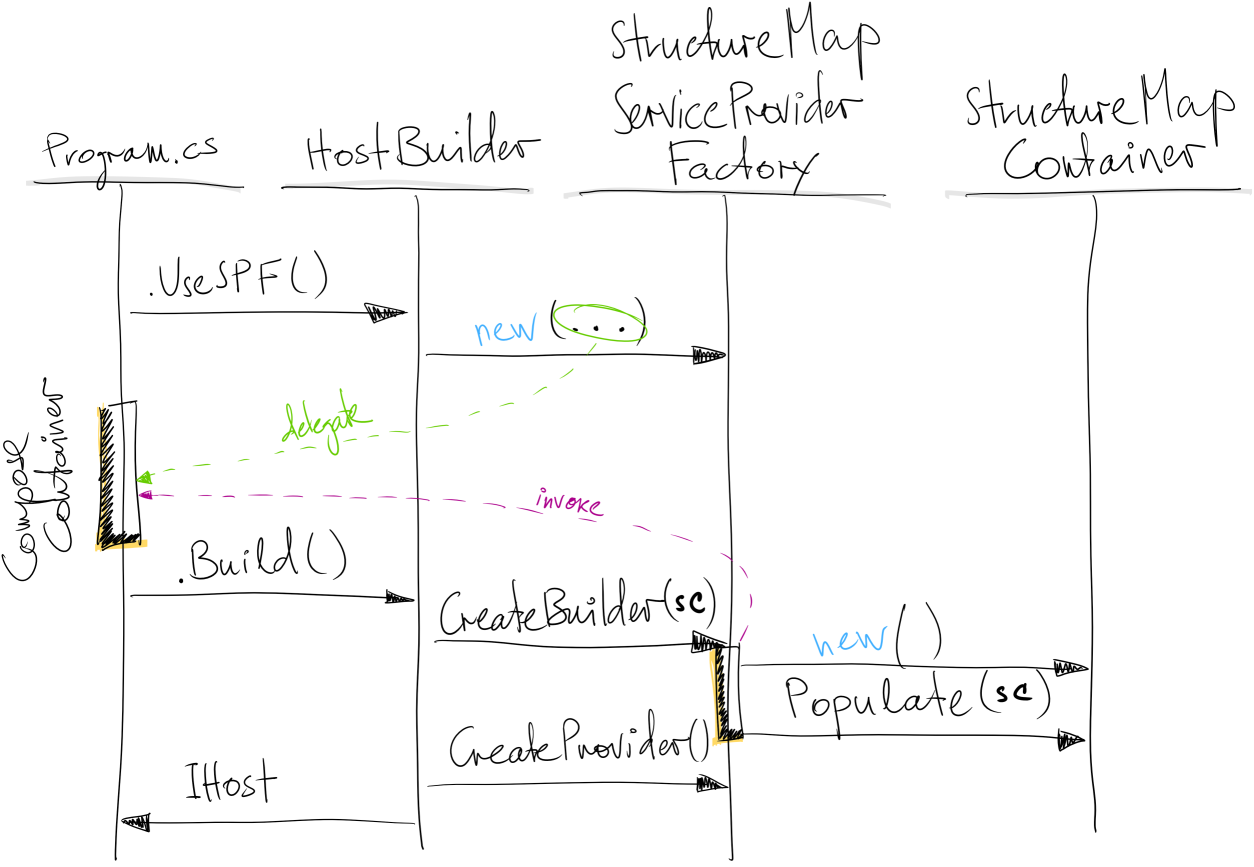 Program.cs
HostBuilder
StructureMap
ServiceProvider
Factory
StructureMap
Container
.UseSPF()
new(...)
delegate
Compose
Container
invoke
.Build()
CreateBuilder(sc)
new()
Populate(sc)
CreateProvider()
IHost